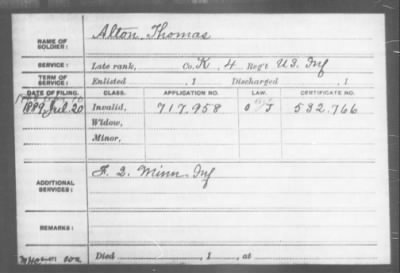 NAME OF SOLDIER: Alton, Thomas
SERVICE: Late rank, Co. K, 4 Reg't U.S. Inf
TERM OF SERVICE: Enlisted , 1 Discharged , 1
DATE OF FILING. CLASS. APPLICATION NO. LAW. CERTIFICATE NO.
1889, Jul. 20 Invalid, 717.958 532.766
Widow,
Minor,
ADDITIONAL SERVICES: F. 2. Minn. Inf
REMARKS:
Died , 1 , at